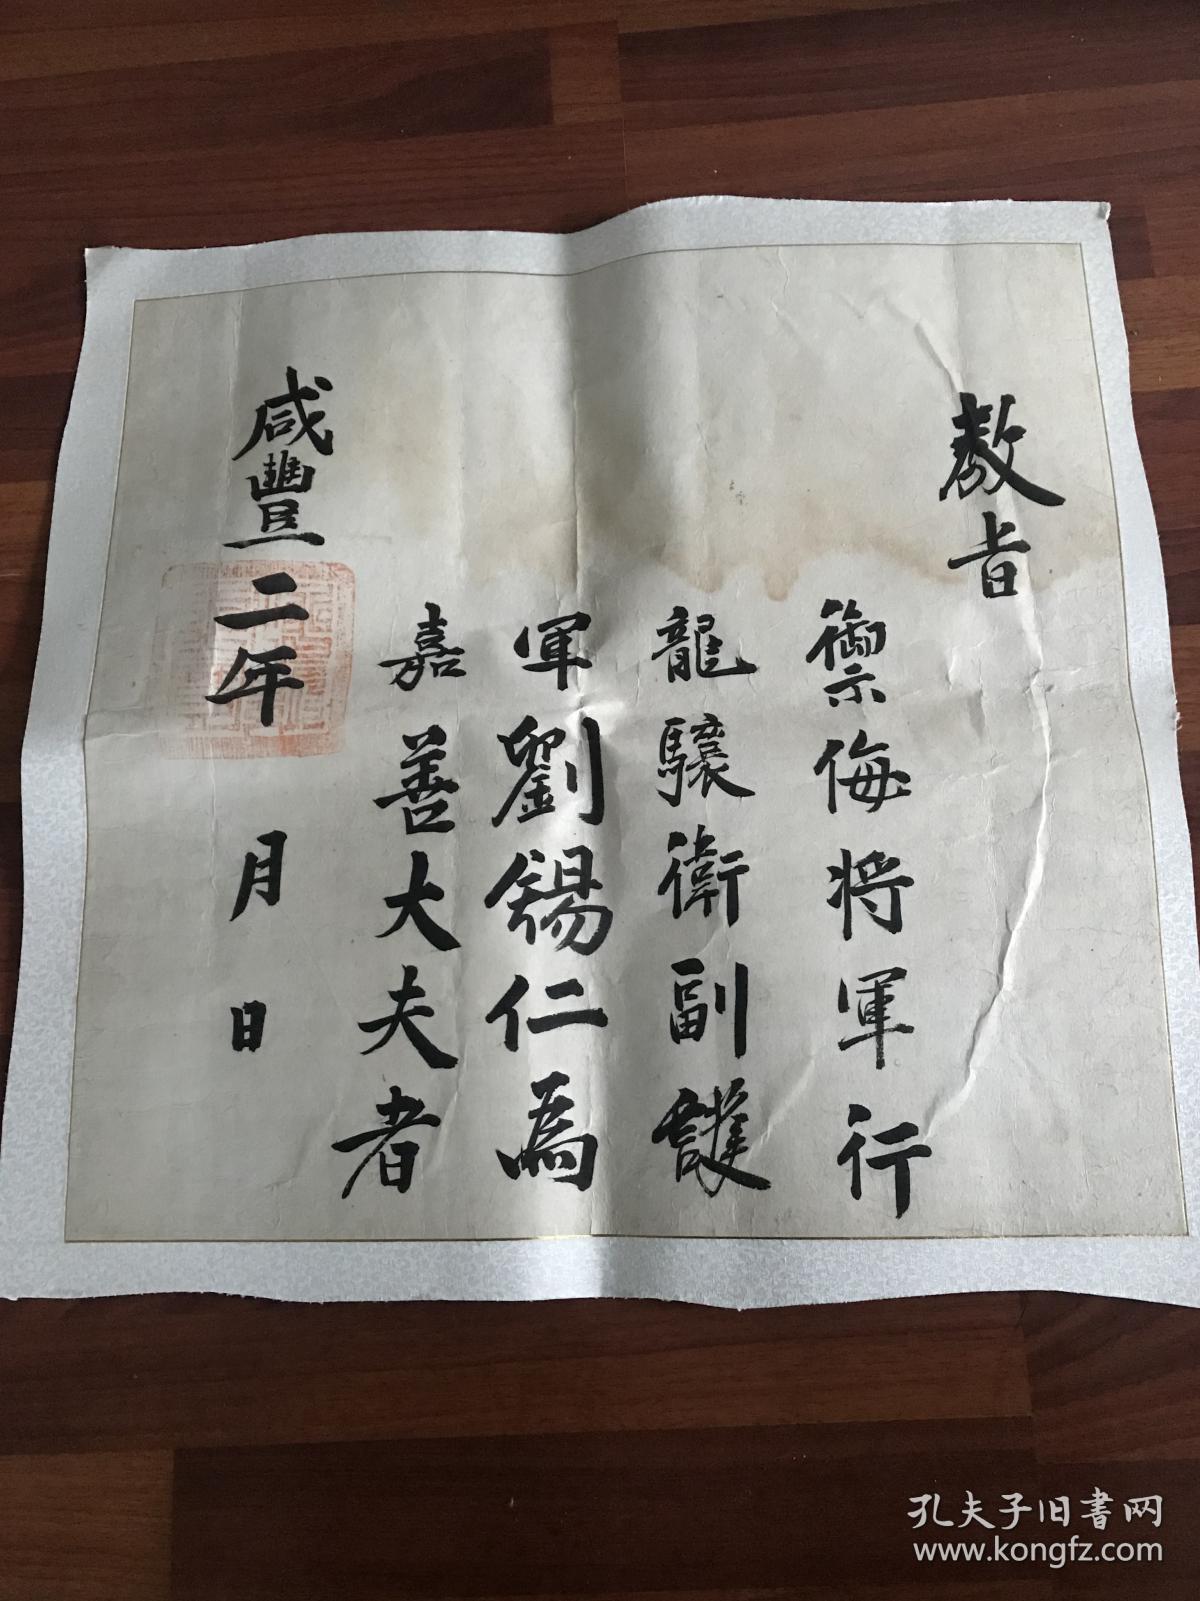 敎旨
禦侮将軍行
龍驤衛副護
軍劉錫仁爲
嘉善大夫者
咸豐二年 月 日
孔夫子旧书网
www.kongfz.com